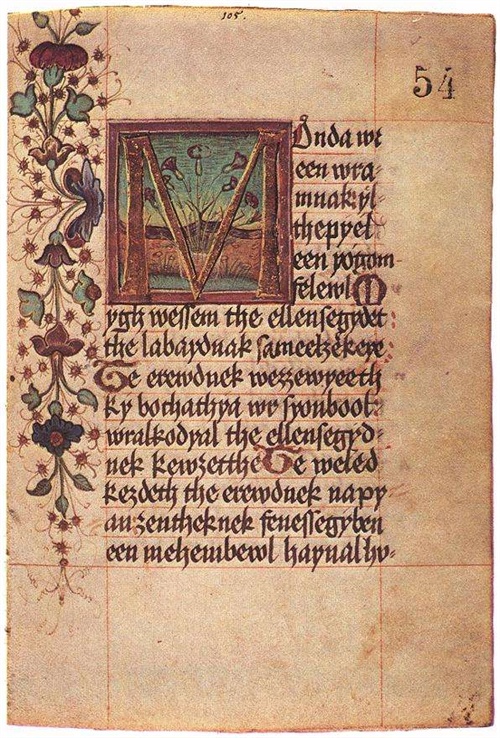 105.
54
MOnda wr
een wra
mnak: yl
thepyel
een yogom
felewl M
ygh wessem the ellensegydet
the labaydnak sameelzekeye
Te erewdnek wezzewyeeth
ky bochathya wr syonbool:
wralkodyal the ellensegyd-
nek kewzetthe Te weled
kezdeth the erewdnek napy
an zentheknek fenessegyben
een mehembewl haynalhv-